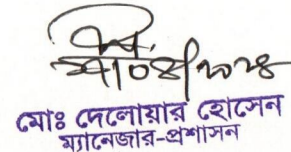 মোঃ দেলোয়ার হোসেন
ম্যানেজার-প্রশাসন